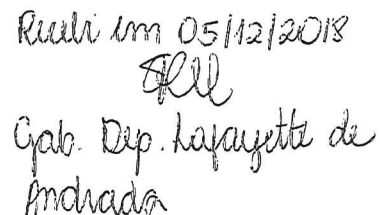 Recebi em 05/12/2018
Gab. Dep. Lafayette de
Andrada